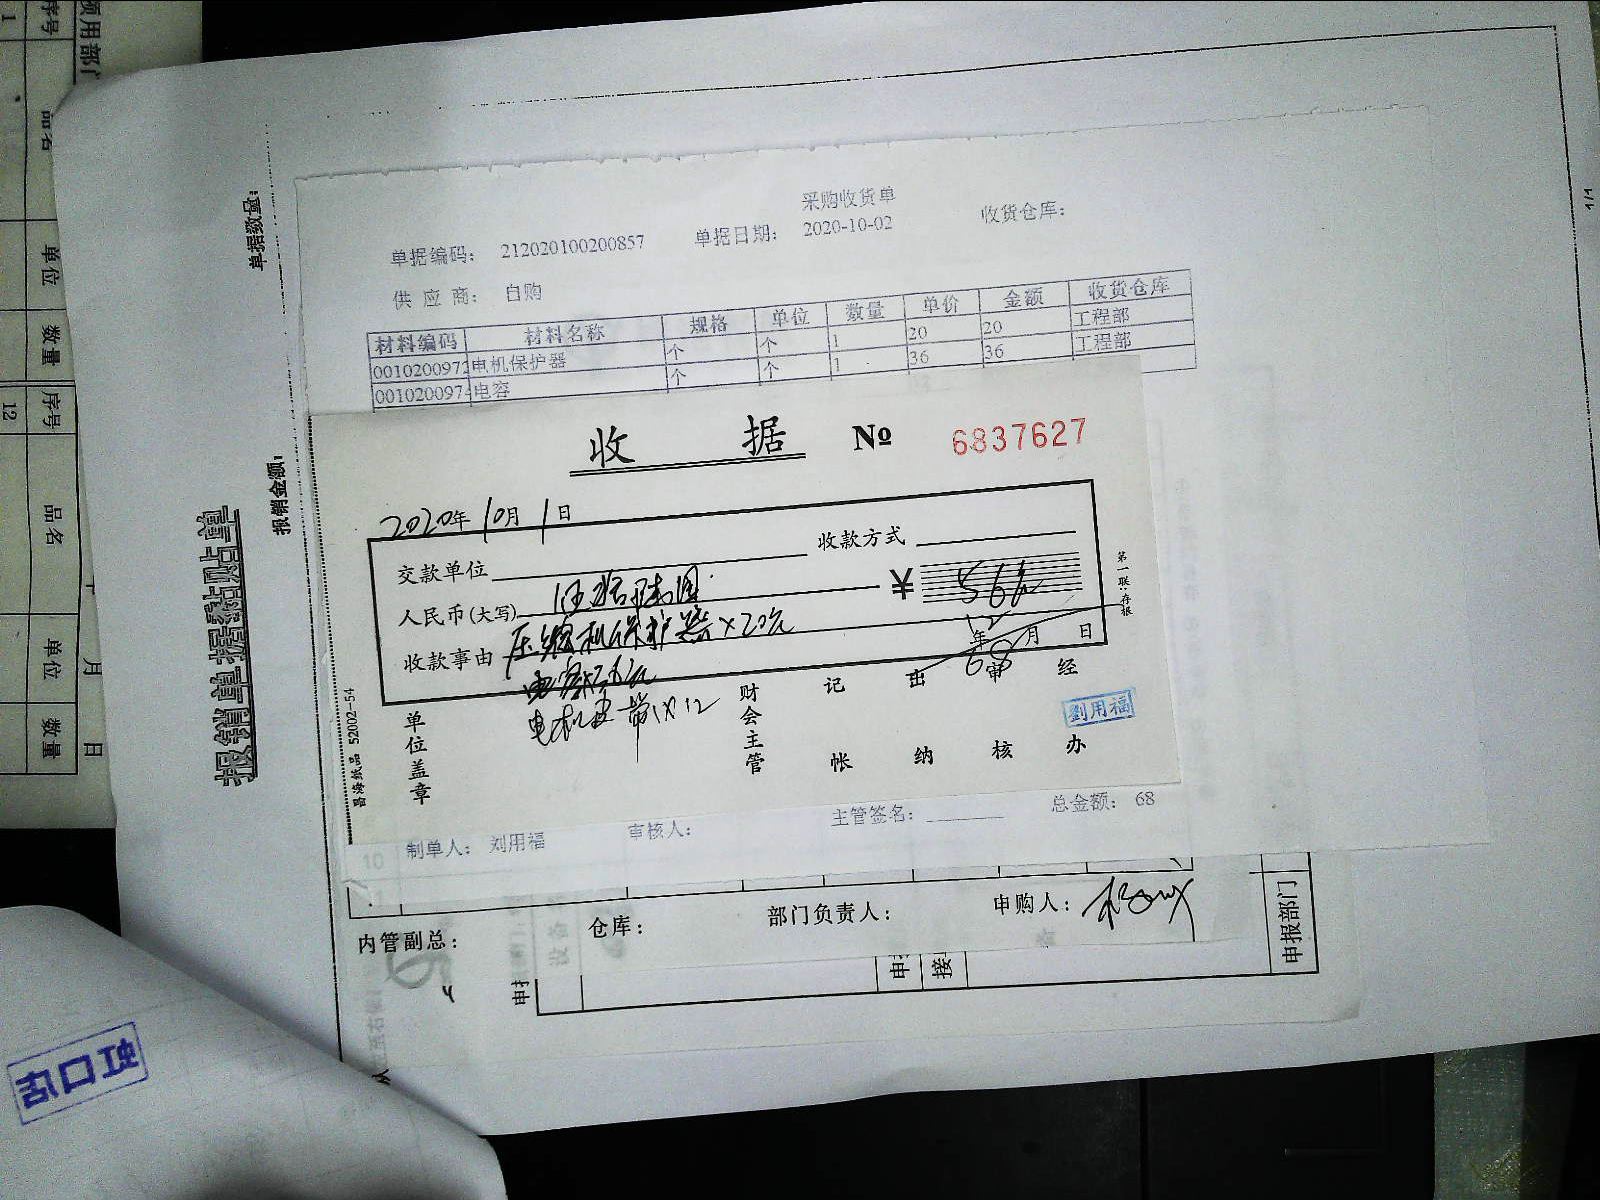 领用部门
序号
品名
单位
数量
序号
品名
单位
数量
1
12
月
日
报销单据黏贴单
单据数量：
报销金额：
1/1
采购收货单
单据编码： 212020100200857 单据日期： 2020-10-02 收货仓库：
供 应 商： 自购
材料编码 材料名称 规格 单位 数量 单价 金额 收货仓库
0010200972 电机保护器 个 个 1 20 20 工程部
0010200974 电容 个 个 1 36 36 工程部
收 据 № 6837627
2020年10月1日
交款单位 收款方式
人民币(大写) 伍拾陆圆 ￥ 56
收款事由 压缩机保护器×20元
12
年 月 日
68
电机皮带1×12
单位盖章
财会主管
记 帐
出 纳
审 核
经 办
劉用福
第一联：存根
晋海纸品 52002-54
制单人： 刘用福 审核人： 主管签名： 总金额： 68
10
内管副总： 仓库： 部门负责人： 申购人：
申报部门
虹口店